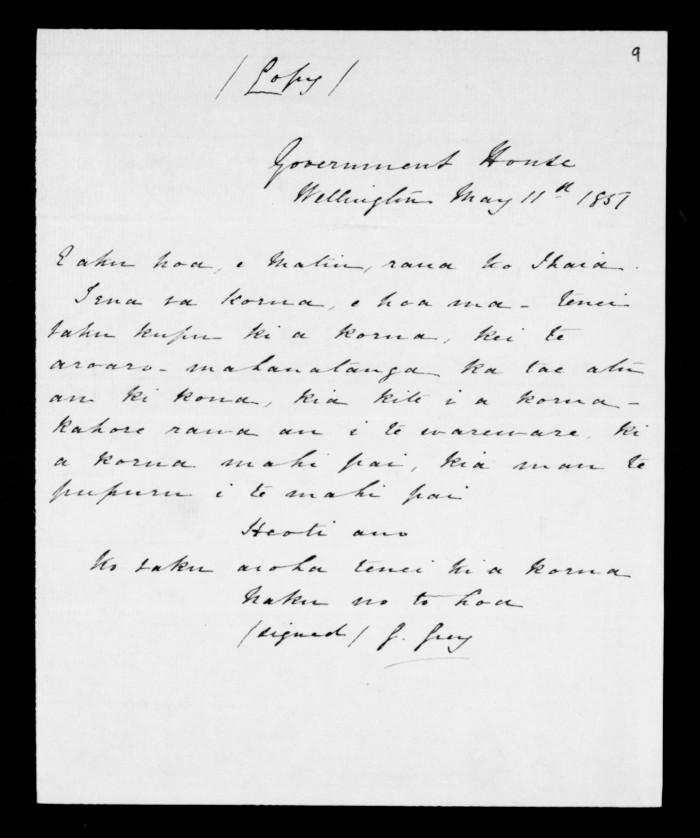 9
/ Copy /
Government House
Wellington May 11th 1851
E aku hoa, e Matiu, raua ko Ihaia.
Tena ra korua, e hoa ma - tenei
taku kupu ki a korua, kei te
aroaro-mahanatanga ka tae atu
au ki kona, kia kite i a korua -
Kahore rawa au i te wareware ki
a korua mahi pai, kia mau te
pupuru i te mahi pai
Heoti ano
Ko taku aroha tenei ki a korua
Naku no to hoa
/signed/ G. Grey